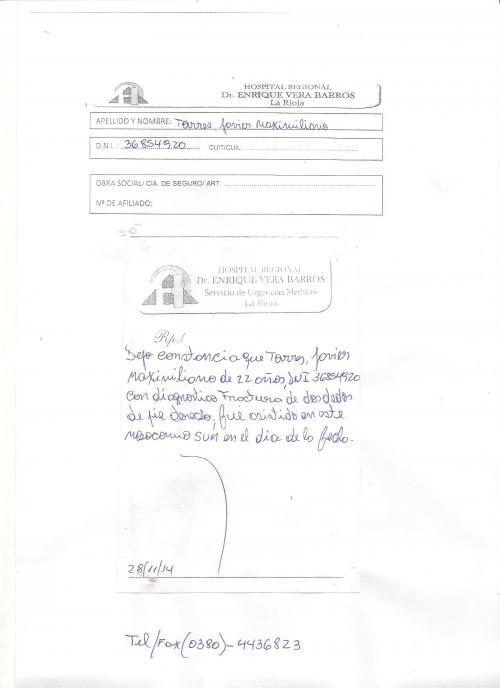 HOSPITAL REGIONAL
Dr. ENRIQUE VERA BARROS
La Rioja
APELLIDO Y NOMBRE: Torres, Javier Maximiliano
D.N.I.: 36854920 CUIT/CUIL:
OBRA SOCIAL/ CIA. DE SEGURO/ ART:
Nº DE AFILIADO:
HOSPITAL REGIONAL
Dr. ENRIQUE VERA BARROS
Servicio de Urgencias Medicas
La Rioja
Rp./
Dejo constancia que Torres, Javier
Maximiliano de 22 años, DNI 36854920
con diagnostico Fractura de dos dedos
de pie derecho, fué asistido en este
nosocomio SUM en el dia de la fecha.
28/11/14
Tel/Fax (0380)-4436823